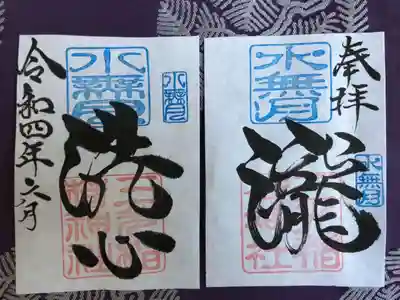 奉拝
水無月
瀧
水無月
水無月
水無月
洗心
令和四年六月